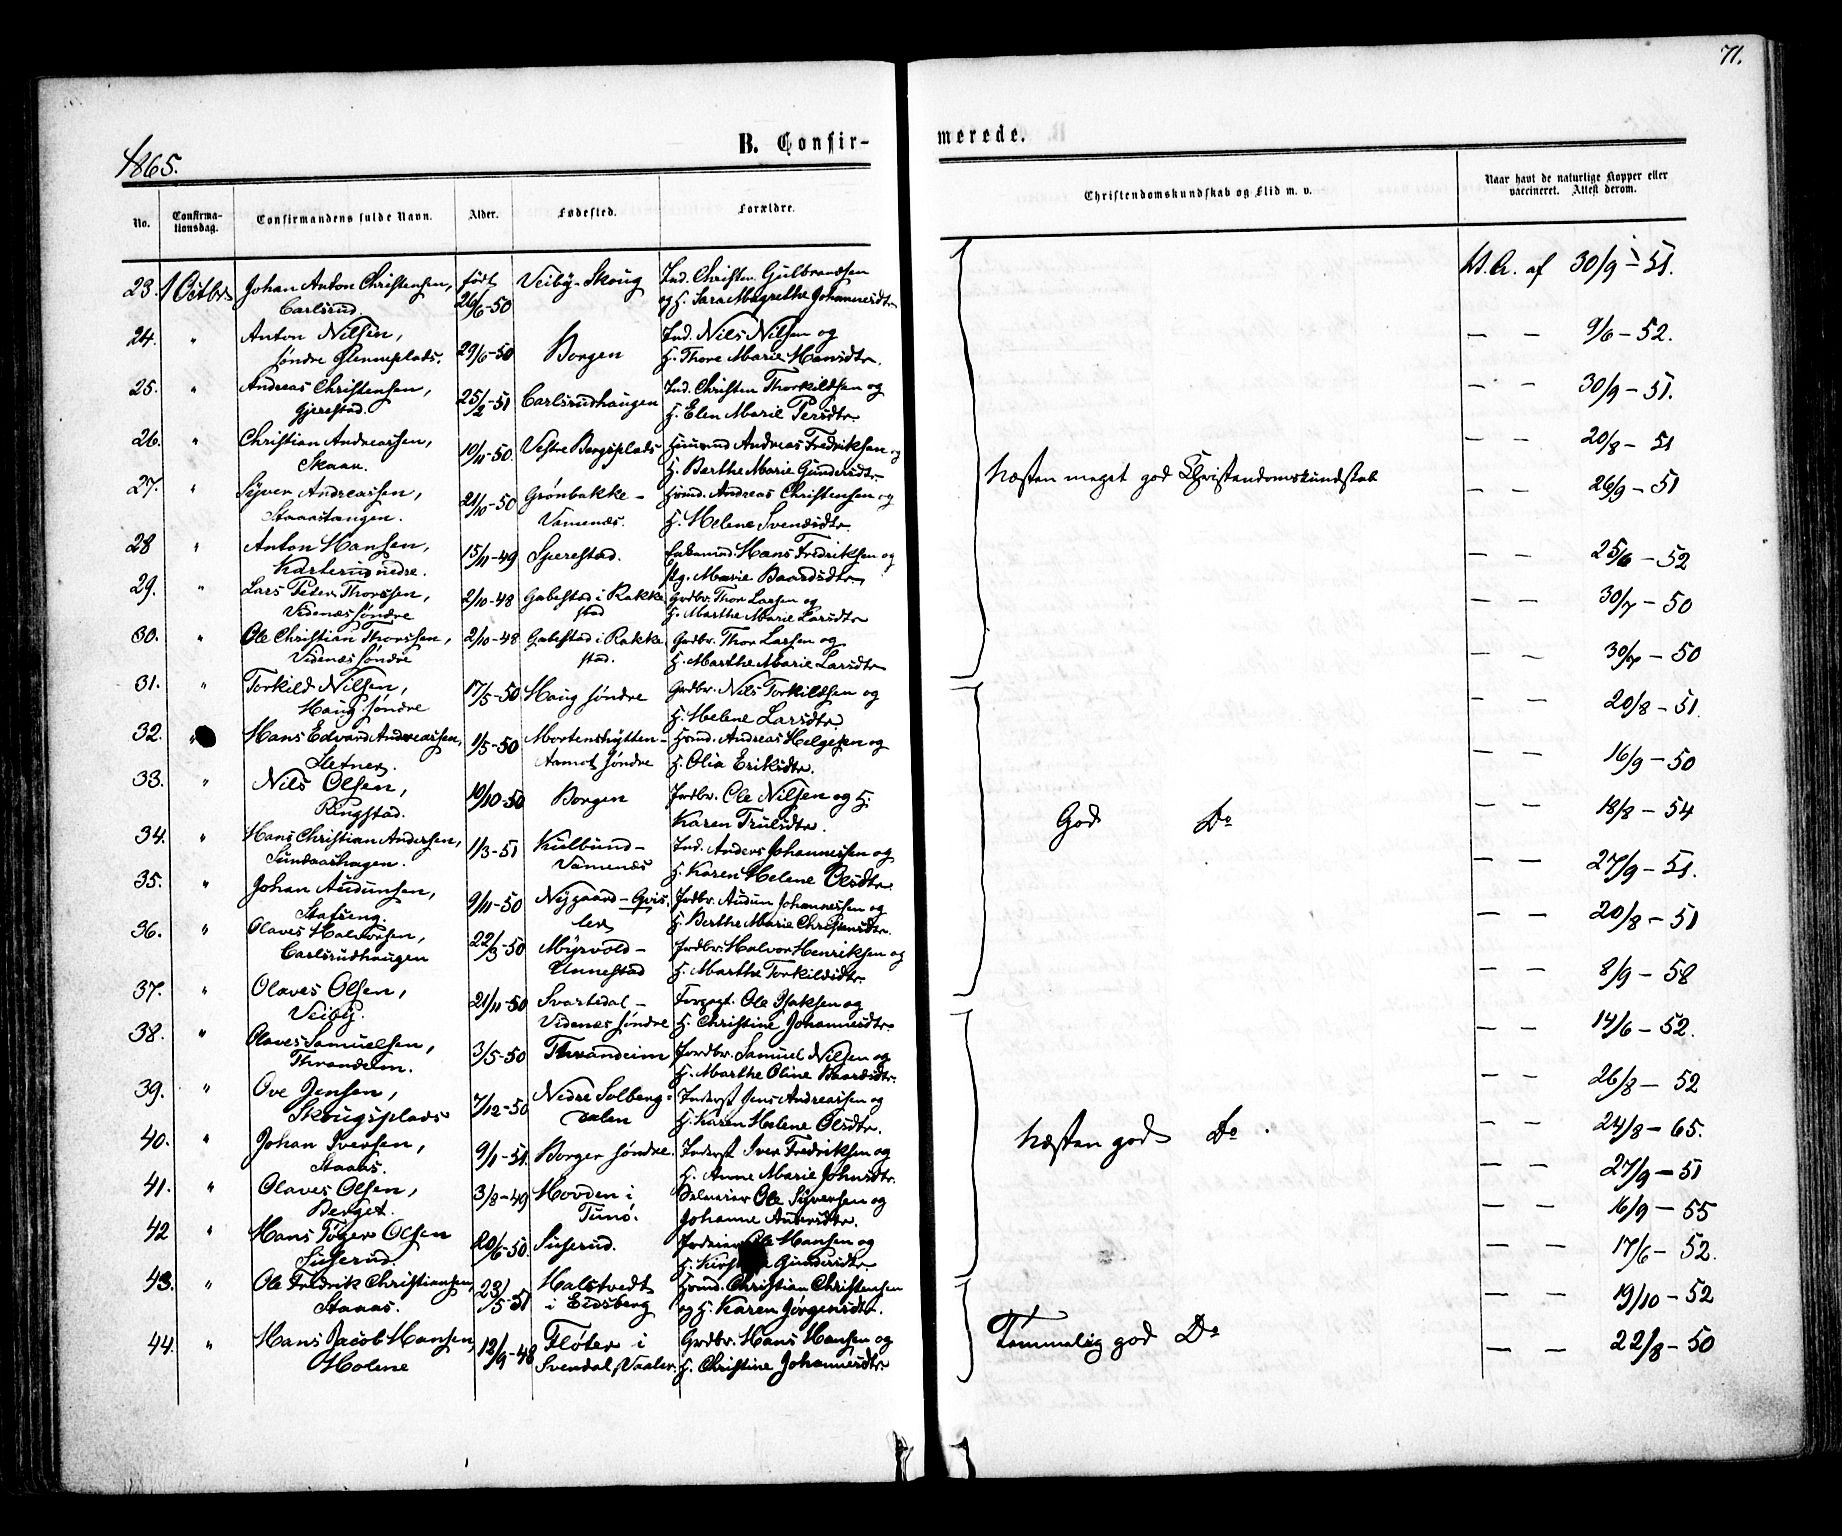 71.
1865.
B. Confir-
merede.
No.
Confirma-
tionsdag.
Confirmandens fulde Navn.
Alder.
Fødested.
Forældre.
Christendomskundskab og Flid m. v.
Naar havt de naturlige Kopper eller
vaccineret. Attest derom.
23. 1 Octbr Johan Anton Christensen, født Veiby-Skoug Ind. Christen Gulbrandsen
Carlsrud. 26/6-50 og H. Sara Magrethe Johannesdtr
V.A. af 30/9-51.
24. " Anton Nilsen, Ind. Nils Nilsen og
Søndre Glenneplads. 29/6-50 Borgen H. Thore Marie Hansdtr.
— — 9/6-52.
25. " Andreas Christensen, Ind. Christen Thorkildsen og
Gjerestad. 25/2-51 Carlsrudhaugen H. Elen Marie Persdtr
— — 30/9-51.
26. " Christian Andreassen, 10/11-50. Vestre Borgsplads Huusmd Andreas Fredriksen og
Skaan. H. Berthe Marie Gundersdtr
— — 20/8-51
27. " Syver Andreassen, 21/10-50 Grønbakke- Husmd. Andreas Christensen og
Staaastangen. Vamenæs. H. Helene Svendsdtr.
— — 26/9-51
28 " Anton Hansen, 15/11-49 Sperestad. Enkemd. Hans Fredriksen og
Karterud nedre. Pg. Marie Baardsdtr
— — 25/6-52
29. " Lars Peter Thorssen, 2/10-48 Gabestad i Rakke Grdbr. Thor Larsen og
Videnæs søndre stad H. Marthe Marie Larsdtr
— — 30/7-50
30. " Ole Christian Thorssen, 2/10-48 Gabestad i Rakke Grdbr. Thor Larsen og
Videnæs søndre stad. H. Marthe Marie Larsdtr
— — 30/7-50
Næsten meget god Christendomskundskab
31. " Torkild Nilsen, 17/5-50 Haug søndre Grdbr. Nils Torkildsen og
Haug søndre H. Helene Larsdtr
— — 20/8-51.
32. " Hans Edvard Andreassen, 1/5-50 Mortenshytten- Husmd. Andreas Helgesen og
Sletner. Aamot søndre H. Olia Eriksdtr.
— — 16/9-50
33. " Nils Olsen, 19/10-50 Borgen Jordbr. Ole Nilsen og H.
Ringstad. Karen Trulsdtr.
— — 18/8-54
34. " Hans Christian Andersen, 1/3-51 Kulbund- Ind. Anders Johannessen og
Sundaashagen. Vamenæs H. Karen Helene Olsdtr
— — 27/9-51.
35. " Johan Audunsen, 9/11-50 Nygaard-Gvis- Jordbr. Audun Johannessen og
Stafseng. ler H. Berthe Marie Christensdtr.
— — 20/8-51
36. " Olaves Halvorsen, 22/3-50 Myrvold- Jordbr. Halvor Henriksen og
Carlsrudhaugen Unnestad H. Marthe Torkildsdtr.
— — 8/9-58
God Do
37. " Olaves Olsen, 21/11-50 Svartedal- Forpagt. Ole Isaksen og
Veiby. Videnæs søndre H. Christine Johannesdtr
— — 14/6-52.
38. " Olaves Samuelsen, 3/5-50 Thrandeim Jordbr. Samuel Nilsen og
Thrandeim. H. Marthe Oline Baardsdtr.
— — 26/8-52
39. " Ove Jensen, 7/12-50 Nedre Solberg- Inderst Jens Andreassen og
Skougsplads dalen H. Karen Helene Olsdtr.
— — 24/8-65.
40. " Johan Iversen, 9/1-51. Borger søndre. Inderst Iver Fredriksen og
Staaas. H. Anne Marie Johnsdtr.
— — 27/9-51
41. " Olaves Olsen, 3/8-49 Hovden i Selveier Ole Syversen og
Berget. Tunø. Johanne Andersdtr.
— — 16/9-55
42 " Hans Tøger Olsen 20/6-50. Suserud. Jordeier Ole Hansen og
Suserud. H. Gundersdtr.
— — 17/6-52.
Næsten god Do
43. " Ole Fredrik Christiansen, 23/5-51 Halstvedt Husmd. Christian Christensen
Staaas. i Eidsberg og H. Karen Jørgensdtr.
— — 19/10-52
44. " Hans Jacob Hansen, 12/9-48 Fløter i Grdbr. Hans Hansen og
Holene Svendal, Vaaler. H. Christine Johannesdtr
— — 22/8-50
Temmelig god Do